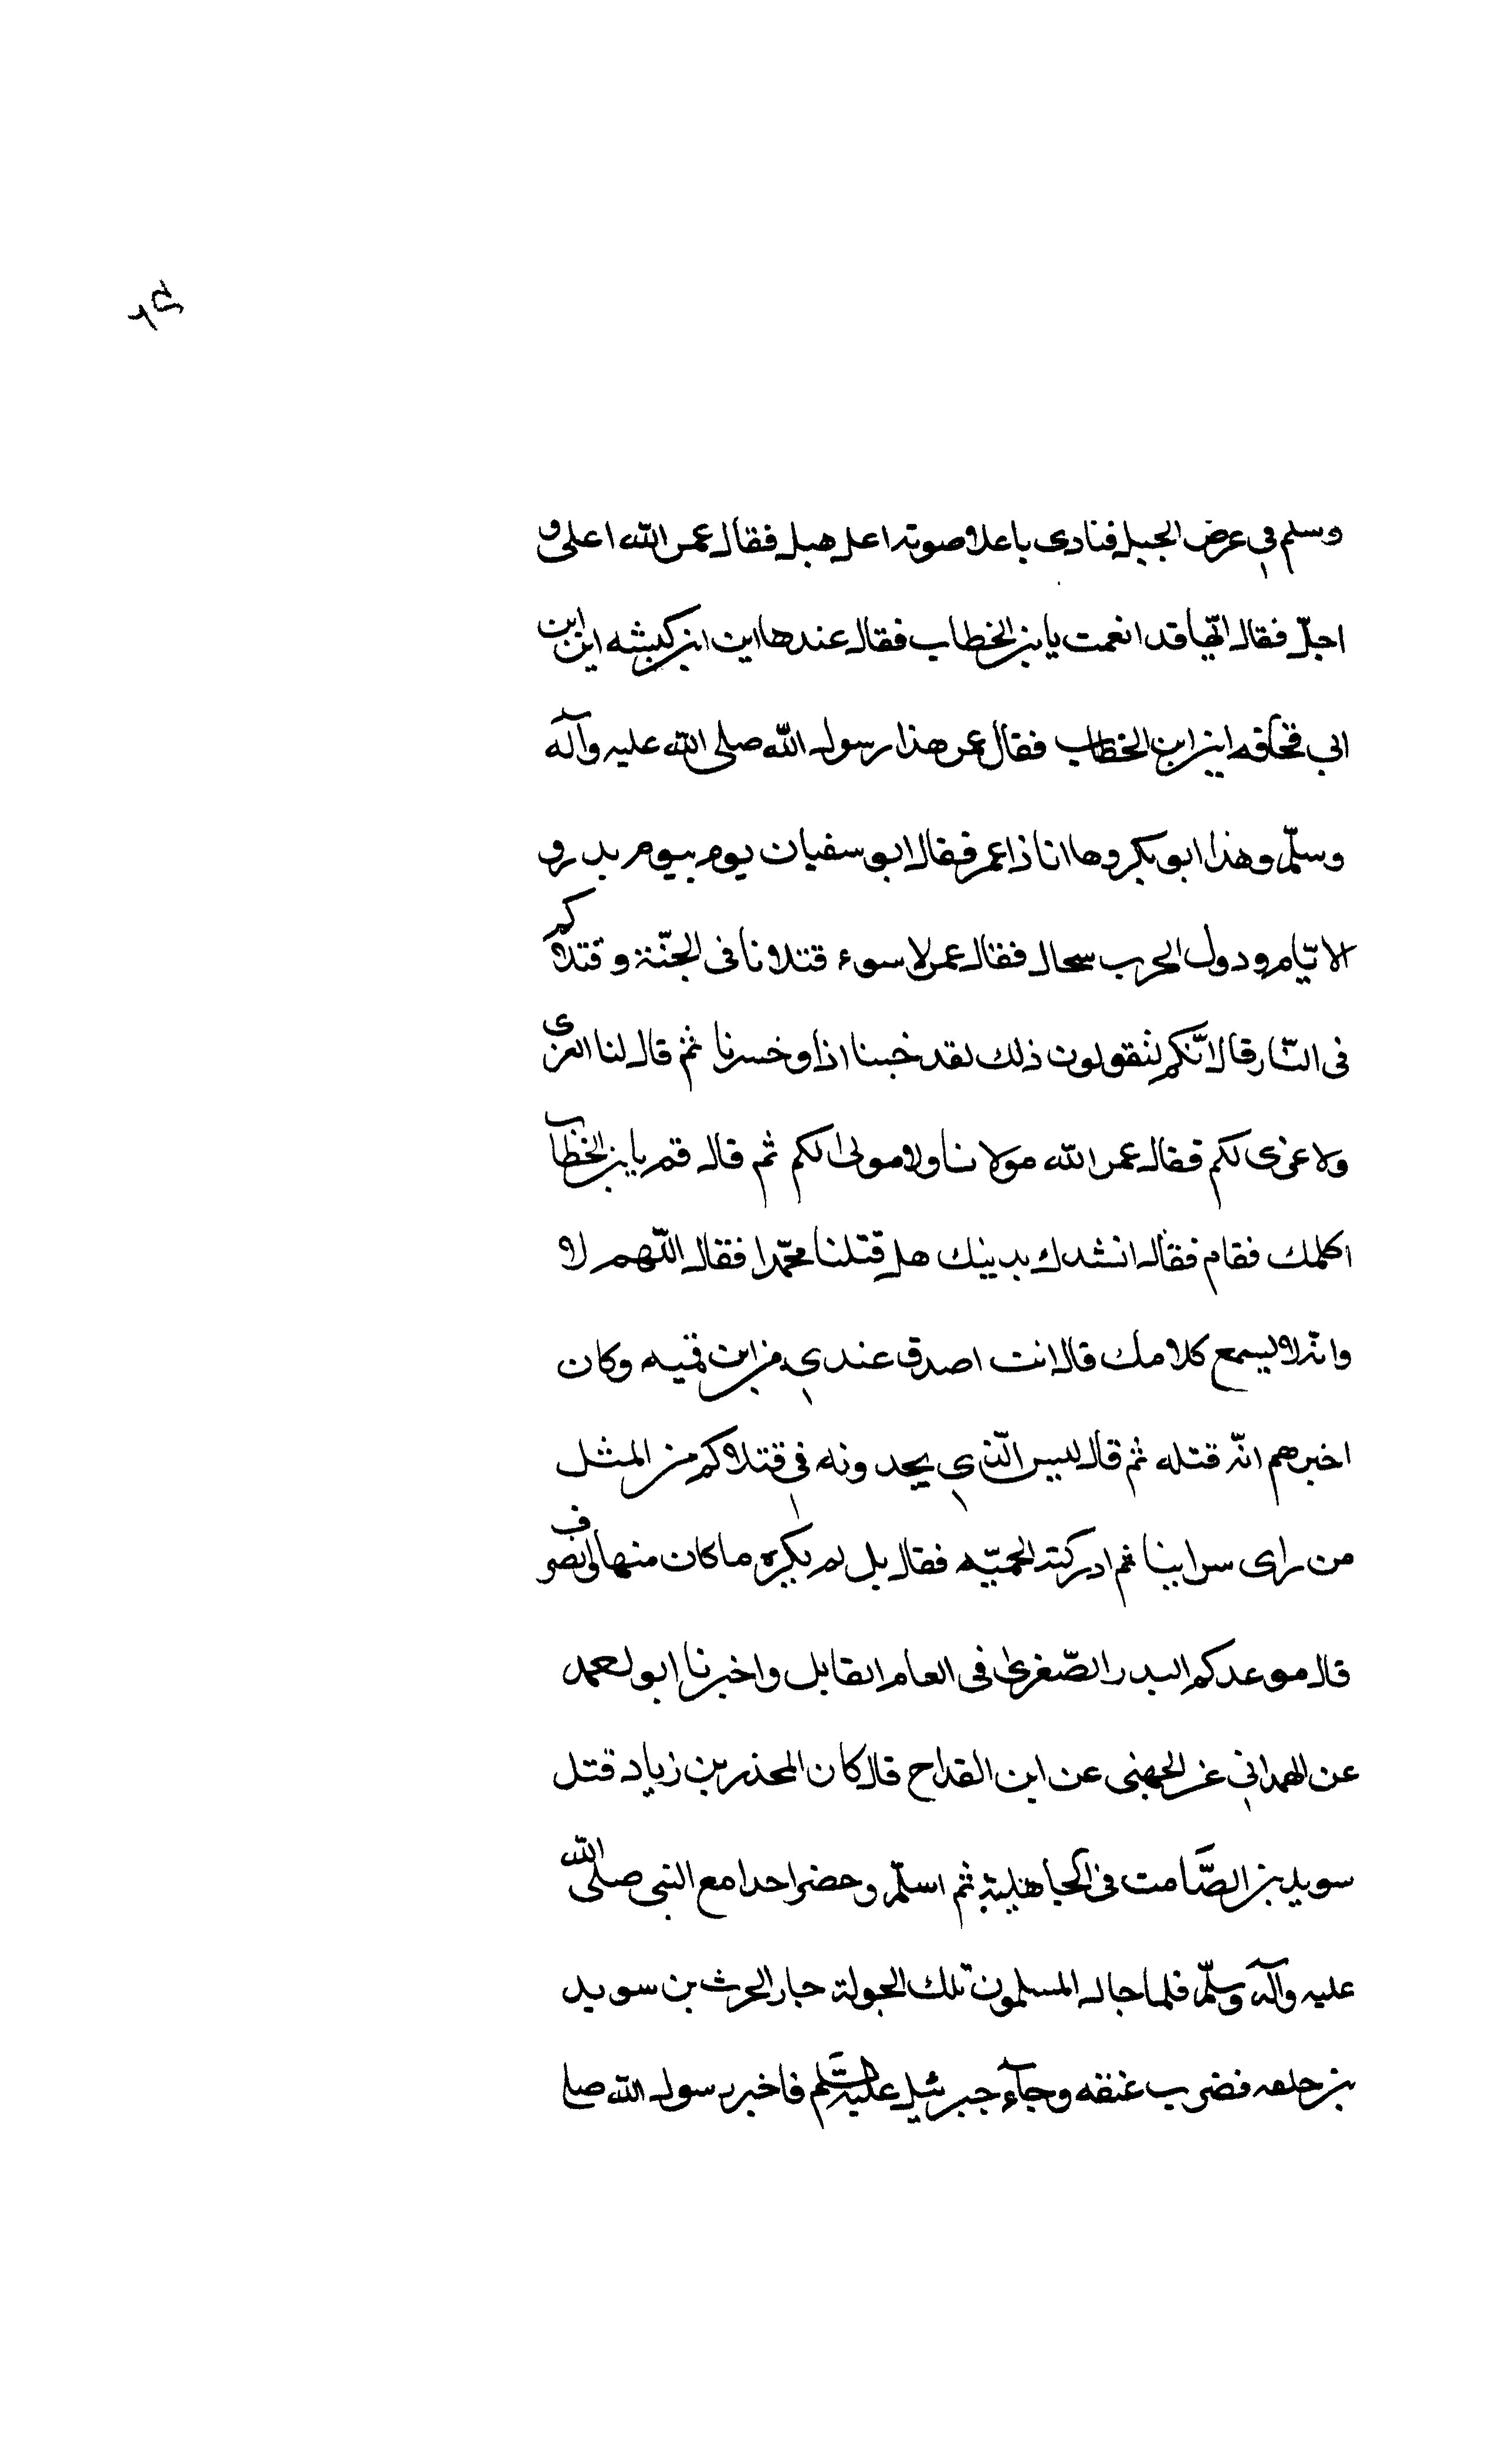 وسلم في عرض الجبل فنادى باعلا صوته اعل هبل فقال عمر الله اعلى و
اجلّ فقال انّها قد انعمت يا بن الخطاب فقال عندها اين ابن كبشه اين ابن
ابي قحافه اين ابن الخطاب فقال عمر هذا رسول الله صلى الله عليه وآله
وسلّم وهذا ابو بكر وها انا ذا عمر فقال ابو سفيان يوم بيوم بدر و
الا تيام ودول الحرب سحال فقال عمر لا سوء قتلانا فى الجنّة وقتلاكم
فى النّار قال انّكم لتقولون ذلك لقد خبنا اذا وخسرنا ثم قال لنا العزى
ولا عزى لكم فقال عمر الله مولانا ولا مولى لكم ثم قال قم يا بن الخطاب
اكلمك فقام فقال انشدك بدينك هل قتلنا محمّدا فقال اللّهم لا
وانّه لا ليسمع كلامك قال انت اصدق عندي من ابن قميه وكان
اخبرهم انّه قتله ثم قال ليس الّذي يجدونه في قتلاكم من المثل
من راى سراينا ثم ادركته الحميّه فقال بل لم يكره ما كان منها وانصرف
قال موعدكم البدر الصّغرى فى العام القابل واخبرنا ابو لعمد
عن الهمداني عن الجهنى عن ابن القداح قال كان المحذر بن زياد قتل
سويد بن الصّامت فى الجاهلية ثم اسلم وحضر احدا مع النبى صلى الله
عليه وآله وسلّم فلما جال المسلمون تلك الجولة جار الحرث بن سويد
من خلفه فضرب عنقه وجآء جبرئيل عليه السّلم فاخبر رسول الله صلى